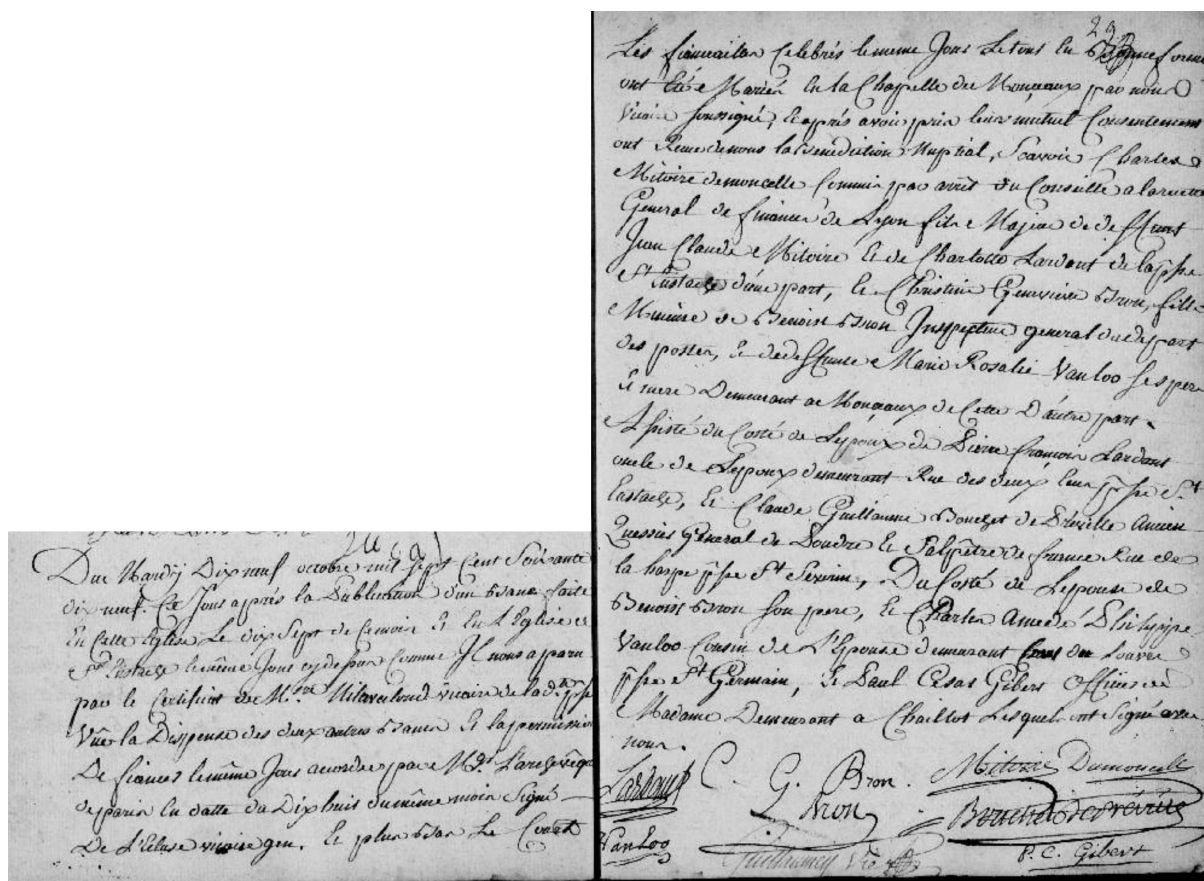 Du Mardy Dix neuf octobre mil sept cent Soixante
dix neuf. Ce Jour après la Publication d'un Ban faite
En Cette Eglise Le dix Sept de Ce mois Et En L'Eglise de
St Eustache le même Jour cy dessus Comme Il nous a paru
par le Certificat de Mre vicaire de la de psse
Vüe la Dispense des deux autres Bans Et la permission
De fiancer le même Jour accordée par Mgr L'archevêque
de paris En datte du Dix huit du même mois Signé
De L'Ecluse vicaire gen. Et plus Bas Le
29
Les fiancailles Celebrés le meme Jour Le tout En Bonne forme
ont Eté Mariés En la Chapelle de Monceaux par nous
Vicaire soussigné, Et après avoir pris leur mutuel Consentement
ont Reçu de nous la Benediction Nuptial, Scavoir Charles
Mitoire Demoncelle Commis par arrêt du Conseille a la recette
General de finances de Lyon fils Majeur de deffunt
Jean Claude Mitoire Et de Charlotte Lardant de la psse
St Eustache d'une part, Et Christine Genevieve Bron, fille
Mineure de Benoist Bron Inspecteur general du depart
des postes, Et de deffunte Marie Rosalie Vanloo ses pere
Et mere Demeurant a Monceaux de Cette D'autre part.
Assisté du Costé de Lepoux de Pierre francois Lardant
oncle de Lepoux demeurant Rue des deux Ecus psse St
Eustache, Et Claude Guillaume Bouchet de Ancien
General de Poudre Et Salpêtre de france Rue de
la harpe psse St Severin, Du Costé de Lepouse de
Benoist Bron son pere, Et Charles Amede Philippe
Vanloo Cousin de L'Epouse demeurant Cour du Louvre
psse St Germain, Et Paul Cesar Gibert Officier de
Madame Demeurant a Chaillot Lesquels ont Signé avec
nous.
Lardant C. G. Bron. Mitoire Dumoncelle
Bron
VanLoo
P. C. Gibert